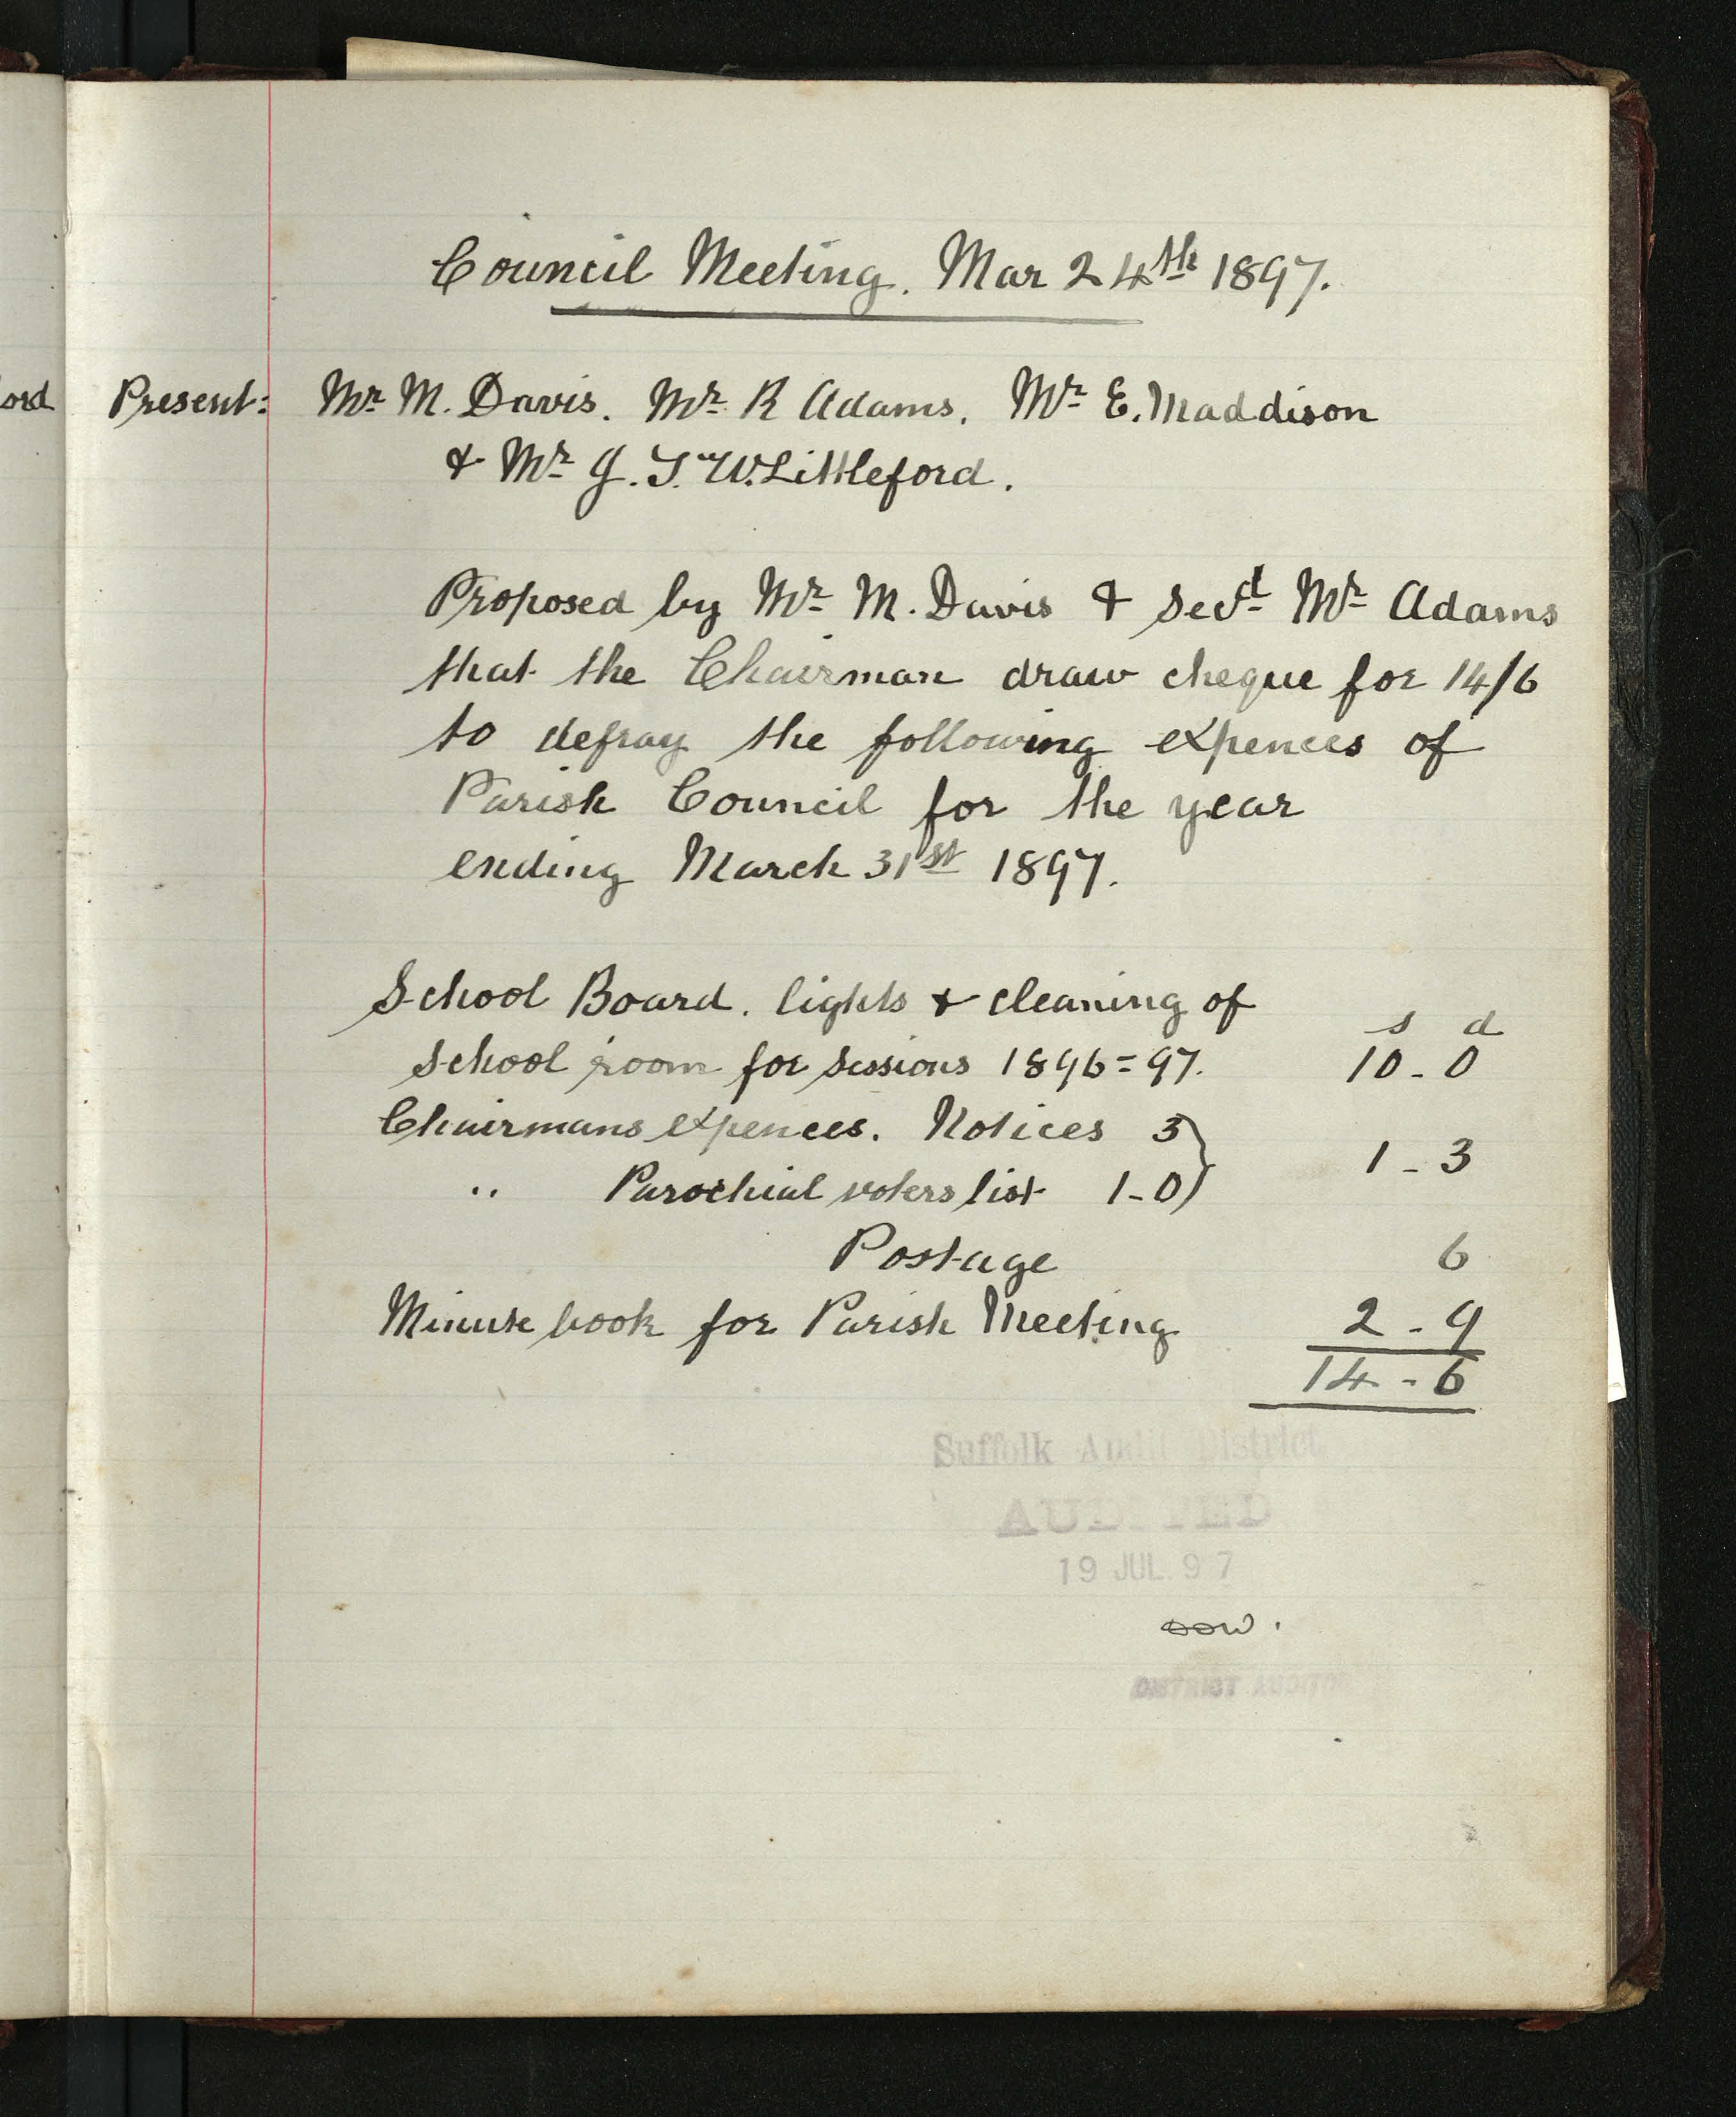 Council Meeting. Mar 24th 1897.
ord
Present: Mr M. Davis. Mr R Adams. Mr E. Maddison
& Mr J. T. W. Littleford.
Proposed by Mr M. Davis & Secd Mr Adams
that the Chairman draw cheque for 14/6
to defray the following expences of
Parish Council for the year
ending March 31st 1897.
School Board. lights & cleaning of
s d
School room for sessions 1896=97. 10-0
Chairmans expences. Notices 3
1-3
" Parochial voters list 1-0
Postage 6
Minute book for Parish Meeting 2-9
14-6
Suffolk Audit District
AUDITED
19 JUL. 97
DISTRICT AUDITOR